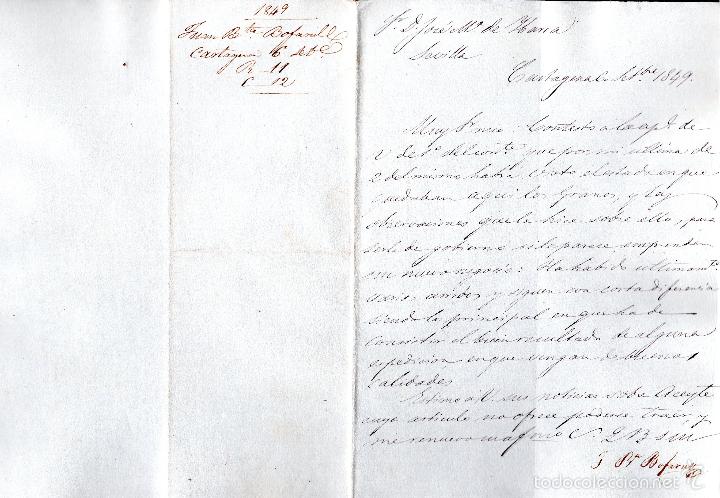 1849
Juan Bta Bofarull
Cartagena 6 Setbe
R 11
C 12
Sr D José Ma de Ybarra
Sevilla
Cartagena 6 Setbre 1849.
Muy Sr mio: Contesto a la apda de
V de 1o del corrte que por mi ultima de
2 del mismo habrá visto el estado en que
quedaban aqui los Granos, y las
observaciones que le hice sobre ello, para
serle de gobierno si le parece emprender
un nuevo negocio: Ha habido ultimamte
varios arribos y siguen con corta diferencia
siendo la principal en que ha de
consistir el buen resultado de alguna
expedicion en que vengan de buenas
calidades
Estimo á V. sus noticias sobre Aceyte
cuyo articulo no ofrece poderse traer y
me renuevo su afmo S. S. Q B S M
J Bta Bofarull
todocoleccion